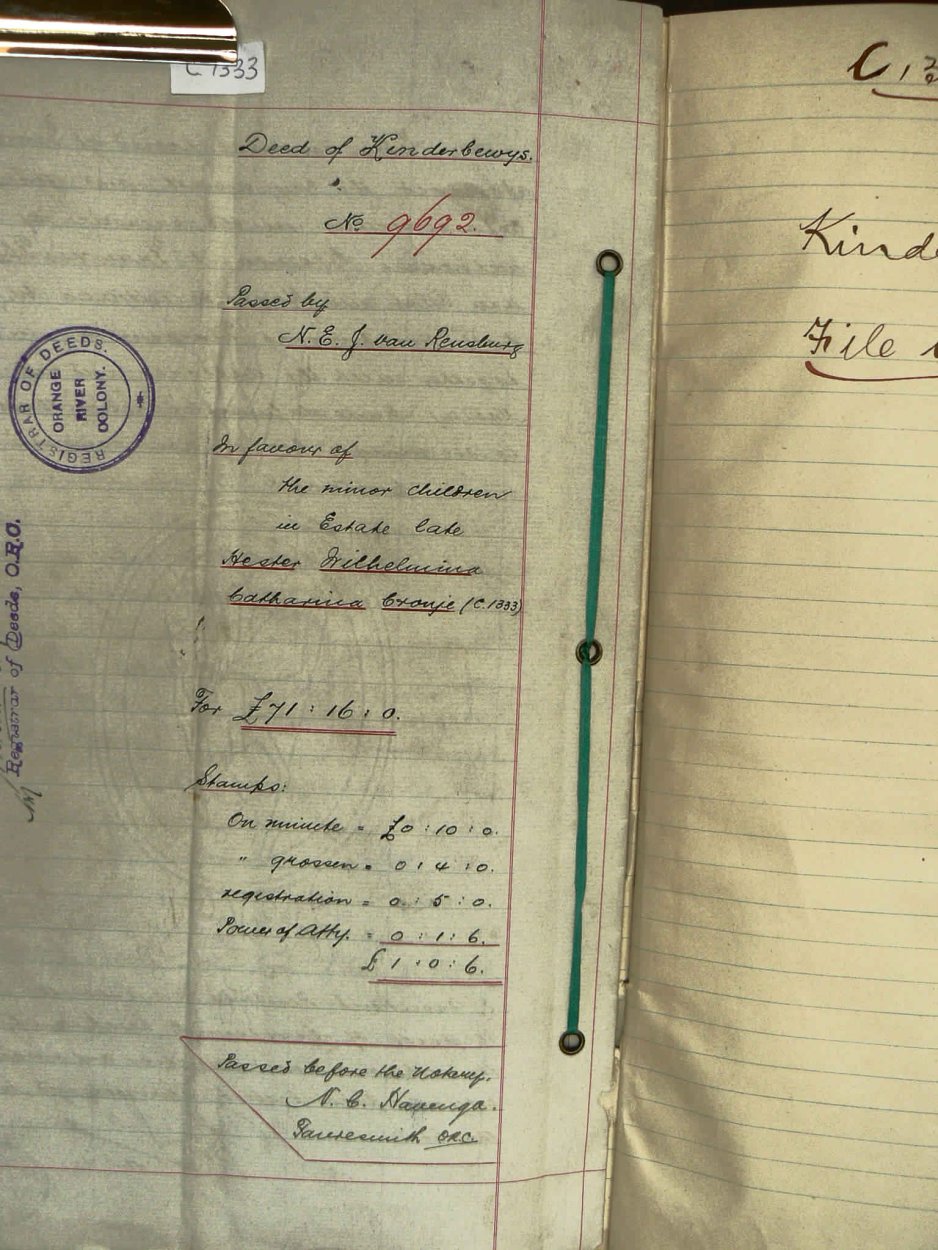 C 1333
Deed of Kinderbewys.
No 9692.
Passed by
N. E. J. van Rensburg
REGISTRAR OF DEEDS.
ORANGE
RIVER
COLONY.
In favour of
the minor children
in Estate late
Hester Wilhelmina
Catharina Cronje (C.1333)
Registrar of Deeds, O.R.C.
For £71 : 16 : 0.
Stamps:
On minute = £0 : 10 : 0.
" grossen = 0 : 4 : 0.
registration = 0 : 5 : 0.
Power of Atty. = 0 : 1 : 6.
£ 1 : 0 : 6.
Passed before the Notary.
N. C. Havenga.
Fauresmith ORC.
C, 
Kinde
File